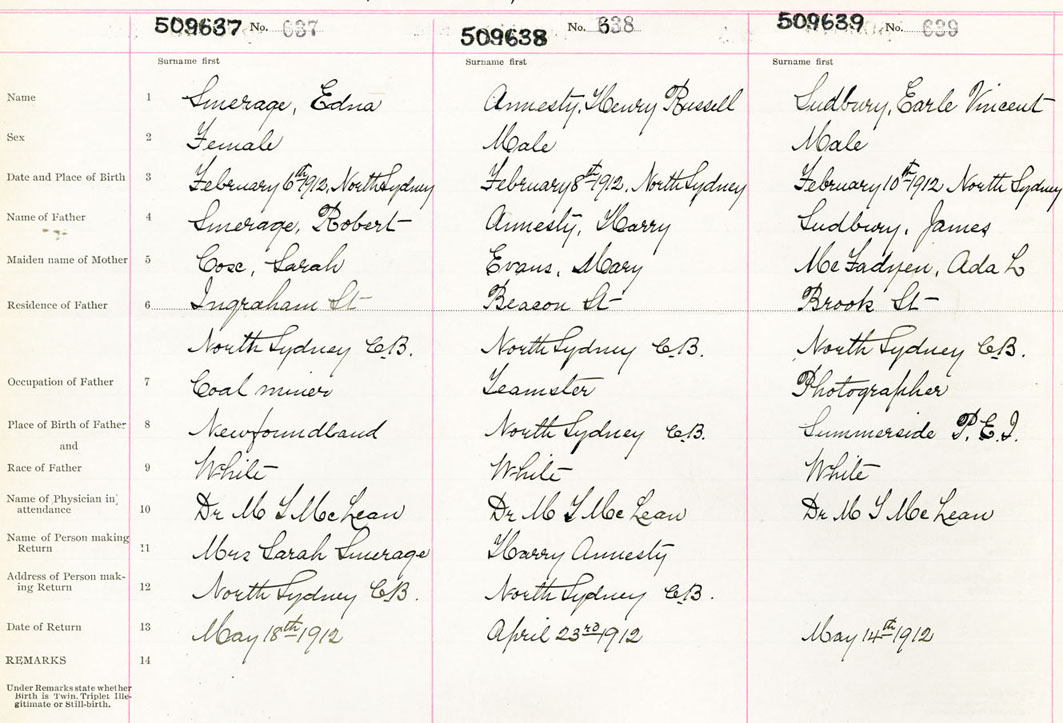 509637 No. 637 509638 No. 638 509639 No. 639
Surname first Surname first Surname first
Name 1 Smerage, Edna Annesty, Henry Russell Sudbury, Earle Vincent
Sex 2 Female Male Male
Date and Place of Birth 3 February 6th 1912, North Sydney February 8th 1912, North Sydney February 10th 1912 North Sydney
Name of Father 4 Smerage, Robert Annesty, Harry Sudbury, James
Maiden name of Mother 5 Cose, Sarah Evans, Mary McFadyen, Ada L
Residence of Father 6 Ingraham St Beason St Brook St
North Sydney C.B. North Sydney C.B. North Sydney C.B.
Occupation of Father 7 Coal miner Teamster Photographer
Place of Birth of Father 8 Newfoundland North Sydney C.B. Summerside P.E.I.
and
Race of Father 9 White White White
Name of Physician in
attendance 10 Dr M T McLean Dr M T McLean Dr M T McLean
Name of Person making
Return 11 Mrs Sarah Smerage Harry Annesty
Address of Person mak-
ing Return 12 North Sydney C.B. North Sydney C.B.
Date of Return 13 May 18th 1912 April 23rd 1912 May 14th 1912
REMARKS 14
Under Remarks state whether
Birth is Twin, Triplet Ille-
gitimate or Still-birth.